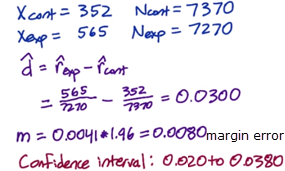 Xcont = 352 Ncont = 7370
Xexp = 565 Nexp = 7270
d̂ = r̂exp - r̂cont
= 565/7270 - 352/7370 = 0.0300
m = 0.0041*1.96 = 0.0080 margin error
Confidence interval: 0.020 to 0.0380